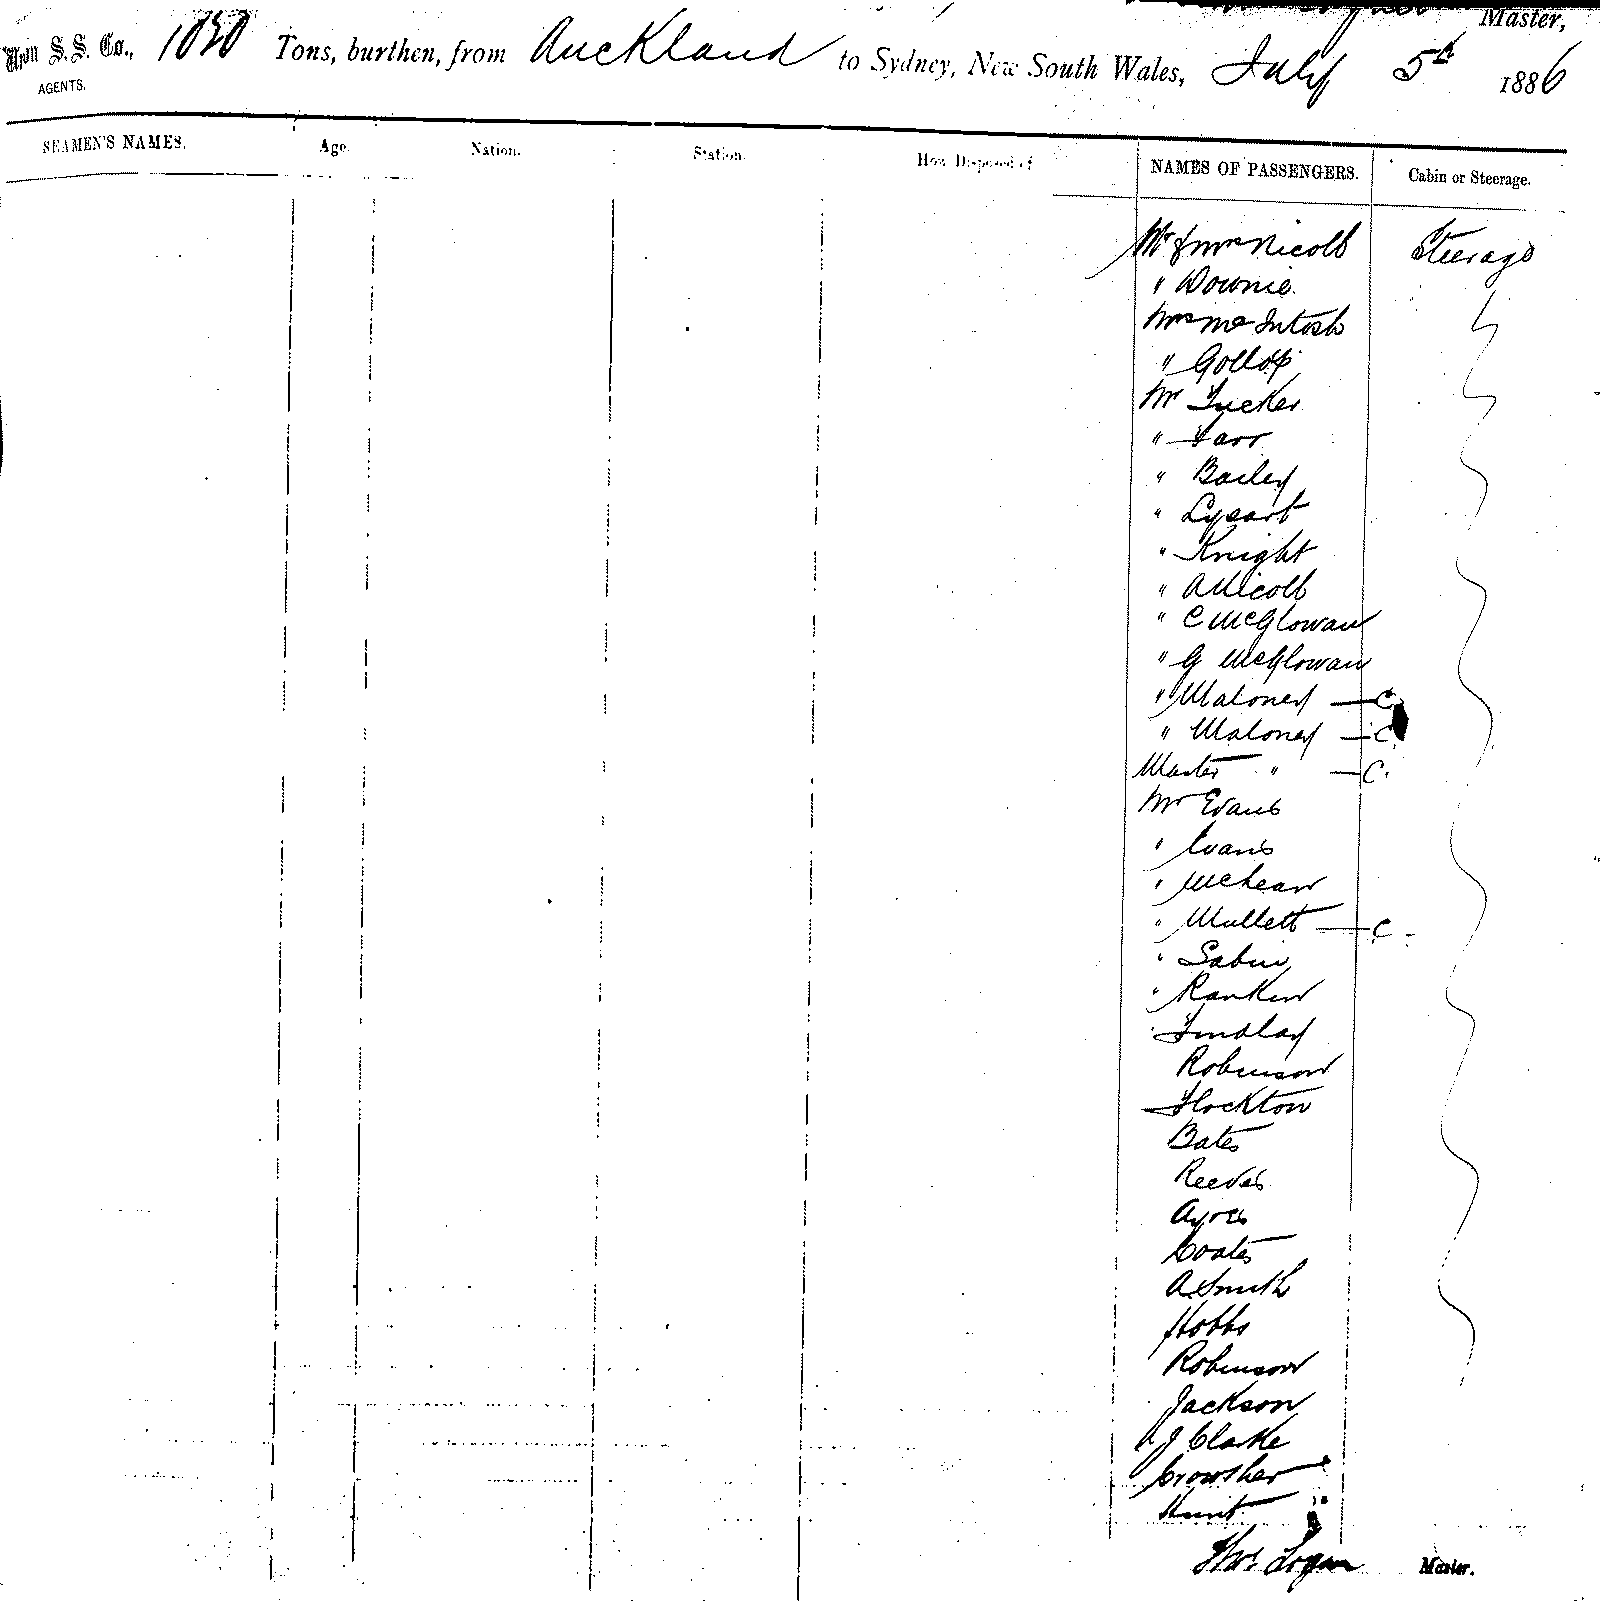 Master,
S.S. Co., 1030 Tons, burthen, from Auckland to Sydney, New South Wales, July 5th 1886
AGENTS.
SEAMEN'S NAMES. Age. Nation. Station. How Disposed of NAMES OF PASSENGERS. Cabin or Steerage.
Mr & Mrs Nicoll Steerage
" Downie
Mrs McIntosh
" Gollop
Mr Tucker
" Farr
" Bailey
" Lysart
" Knight
" A Nicoll
" C McGlowan
" G McGlowan
" Maloney — C
" Maloney — C.
Master " — C.
Mr Evans
" Evans
" McLean
" Mullett — C.
" Sabin
" Rankin
" Findlay
Robinson
Flockton
Bates
Reeves
Ayres
Coates
A Smith
Hobbs
Robinson
Jackson
J Clarke
Crowther
Hunt
Thos. Logan Master.